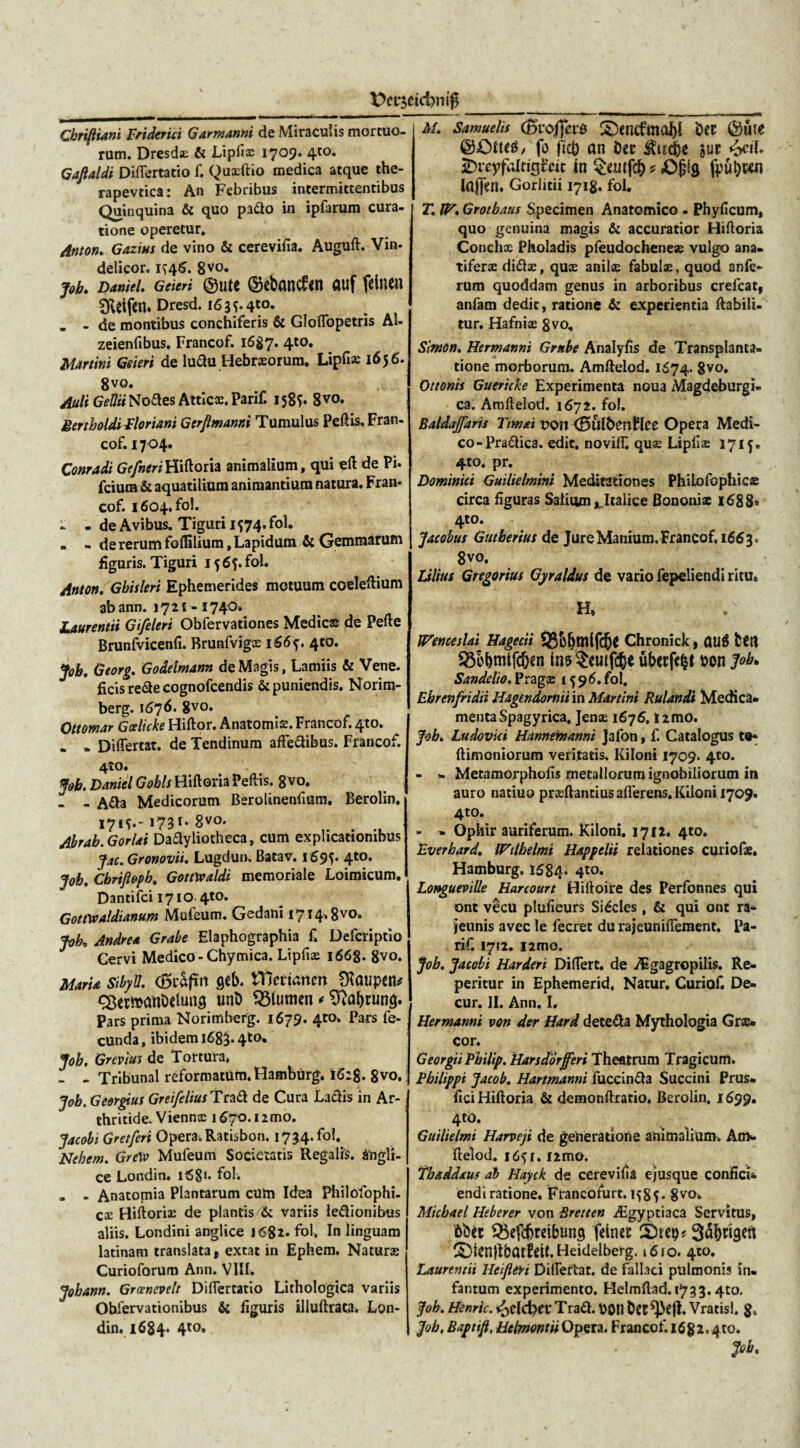 Verzeichniß
Chriſtiani Friderici Garmanni de Miraculis mortuo-
rum. Dresdæ & Lipſiæ 1709. 4to.
Gaſtaldi Diſſertatio ſ. Quæſtio medica atque the-
rapevtica: An Febribus intermittentibus
Quinquina & quo pacto in ipſarum cura-
tione operetur.
Anton. Gazius de vino & cereviſia. Auguſt. Vin-
delicor. 1546. 8vo.
Joh. Daniel. Geieri Gute Gedancken auf ſeinen
Reiſen. Dresd. 1635. 4to.
- - de montibus conchiferis & Gloſſopetris Al-
zeienſibus. Francof. 1687. 4to.
Martini Geieri de luctu Hebræorum. Lipſiæ 1656.
8vo.
Auli Gellii Noctes Atticæ. Pariſ. 1585. 8vo.
Bertholdi Floriani Gerſtmanni Tumulus Peſtis. Fran-
cof. 1704.
Conradi Geſneri Hiſtoria animalium, qui eſt de Pi-
ſcium & aquatilium animantium natura. Fran-
cof. 1604. fol.
- - de Avibus. Tiguri 1574. fol.
- - de rerum foſſilium, Lapidum & Gemmarum
figuris. Tiguri 1565. fol.
Anton. Ghisleri Ephemerides motuum coeleſtium
ab ann. 1721-1740.
Laurentii Giſeleri Obſervationes Medicæ de Peſte
Brunſvicenſi. Brunſvigæ 1665. 4to.
Joh. Georg. Godelmann de Magis, Lamiis & Vene-
ficis recte cognoſcendis & puniendis. Norim-
berg. 1676. 8vo.
Ottomar Gœlicke Hiſtor. Anatomiæ. Francof. 4to.
- - Diſſertat. de Tendinum affectibus. Francof.
4to.
Joh. Daniel Gohls Hiſtoria Peſtis. 8vo.
- - Acta Medicorum Berolinenſium. Berolin.
1715.-1731. 8vo.
Abrah. Gorlæi Dactyliotheca, cum explicationibus
Jac. Gronovii. Lugdun. Batav. 1695. 4to.
Joh. Chriſtoph. Gottwaldi memoriale Loimicum.
Dantiſci 1710. 4to.
Gottwaldianum Muſeum. Gedani 1714, 8vo.
Joh. Andreæ Grabe Elaphographia ſ. Deſcriptio
Cervi Medico-Chymica. Lipſiæ 1668. 8vo.
Maria Sibyll. Gräfin geb. Merianen Raupen-
Verwandelung und Blumen-Nahrung.
Pars prima Norimberg. 1679. 4to. Pars ſe-
cunda, ibidem 1683. 4to.
Joh. Grevius de Tortura.
- - Tribunal reformatum. Hamburg. 1628. 8vo.
Joh. Georgius Greiſelius Tract de Cura Lactis in Ar-
thritide. Viennæ 1670. 12mo.
Jacobi Gretſeri Opera. Ratisbon. 1734. fol.
Nehem. Grew Muſeum Societatis Regalis. angli-
ce Londin. 1681. fol.
- - Anatomia Plantarum cum Idea Philoſophi-
cæ Hiſtoriæ de plantis & variis lectionibus
aliis. Londini anglice 1682. fol. In linguam
latinam translata, extat in Ephem. Naturæ
Curioſorum Ann. VIII.
Johann. Grœnevelt Diſſertatio Lithologica variis
Obſervationibus & figuris illuſtrata. Lon-
din. 1684. 4to.
M. Samuelis Groſſers Denckmahl der Güte
GOttes, ſo ſich an der Kirche zur Heil.
Dreyfaltigkeit in Teutſch-Oßig ſpühren
laſſen. Gorlitii 1718. fol.
T. W. Grothaus Specimen Anatomico-Phyſicum,
quo genuina magis & accuratior Hiſtoria
Conchæ Pholadis pſeudocheneæ vulgo ana-
tiferæ dictæ, quæ anilæ fabulæ, quod anſe-
rum quoddam genus in arboribus creſcat,
anſam dedit, ratione & experientia ſtabili-
tur. Hafniæ 8vo.
Simon. Hermanni Grube Analyſis de Transplanta-
tione morborum. Amſtelod. 1674. 8vo.
Ottonis Guericke Experimenta noua Magdeburgi-
ca. Amſtelod. 1672. fol.
Baldaſſaris Timæi von Güldenklee Opera Medi-
co-Practica. edit. noviſſ. quæ Lipſiæ 1715.
4to. pr.
Dominici Guilielmini Meditationes Philoſophicæ
circa figuras Salium, Italice Bononiæ 1688.
4to.
Jacobus Gutherius de Jure Manium. Francof. 1663.
8vo.
Lilius Gregorius Gyraldus de vario ſepeliendi ritu.
H.
Wenceslai Hagecii Böhmiſche Chronick, aus dem
Böhmiſchen ins Teutſche überſetzt von Joh.
Sandelio. Pragæ 1596. fol.
Ehrenfridii Hagendornii in Martini Rulandi Medica-
menta Spagyrica. Jenæ 1676. 12mo.
Joh. Ludovici Hannemanni Jaſon, ſ. Catalogus te-
ſtimoniorum veritatis. Kiloni 1709. 4to.
- - Metamorphoſis metallorum ignobiliorum in
auro natiuo præſtantius aſſerens. Kiloni 1709.
4to.
- - Ophir auriferum. Kiloni. 1712. 4to.
Everhard. Wilhelmi Happelii relationes curioſæ.
Hamburg. 1684. 4to.
Longueville Harcourt Hiſtoire des Perſonnes qui
ont vêcu pluſieurs Siécles, & qui ont ra-
jeunis avec le ſecret du rajeuniſſement. Pa-
riſ. 1712. 12mo.
Joh. Jacobi Harderi Diſſert. de Ægagropilis. Re-
peritur in Ephemerid. Natur. Curioſ. De-
cur. II. Ann. I.
Hermanni von der Hard detecta Mythologia Græ-
cor.
Georgii Philip. Harsdörfferi Theatrum Tragicum.
Philippi Jacob. Hartmanni ſuccincta Succini Prus-
ſici Hiſtoria & demonſtratio. Berolin. 1699.
4to.
Guilielmi Harveji de generatione animalium. Am-
ſtelod. 1651. 12mo.
Thaddæus ab Hayck de cereviſia ejusque confici-
endi ratione. Francofurt. 1585. 8vo.
Michael Heberer von Bretten Ægyptiaca Servitus,
oder Beſchreibung ſeiner Drey-Jährigen
Dienſtbarkeit. Heidelberg. 1610. 4to.
Laurentii Heiſteri Diſſertat. de fallaci pulmonis in-
fantum experimento. Helmſtad. 1733. 4to.
Joh. Henric. Helcher Tract. von der Peſt. Vratisl. 8.
Joh. Baptiſt. Helmontii Opera. Francof. 1682. 4to.
Joh.